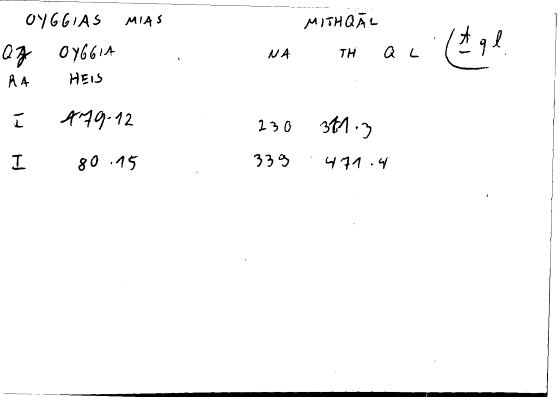 OYGGIAS MIAS MITHQĀL
OYGGIA NA TH Q L
RA HEIS
I 479.12 230 311.3
I 80.15 339 471.4